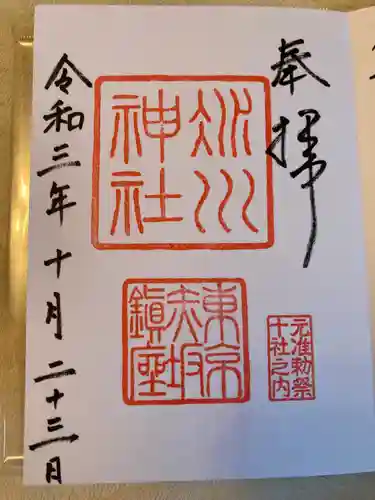 奉拝
氷川神社
元准勅祭
十社之内
東京赤坂鎮座
令和三年十月二十三日